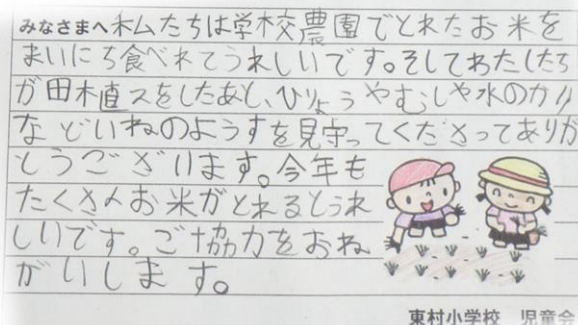 みなさまへ私たちは学校農園でとれたお米を
まいにち食べれてうれしいです。そしてわたしたち
が田植えをしたあと、ひりょうやむしや水のかり
などいねのようすを見守ってくださってありが
とうございます。今年も
たくさんお米がとれるとうれ
しいです。ご協力をおね
がいします。
東村小学校 児童会